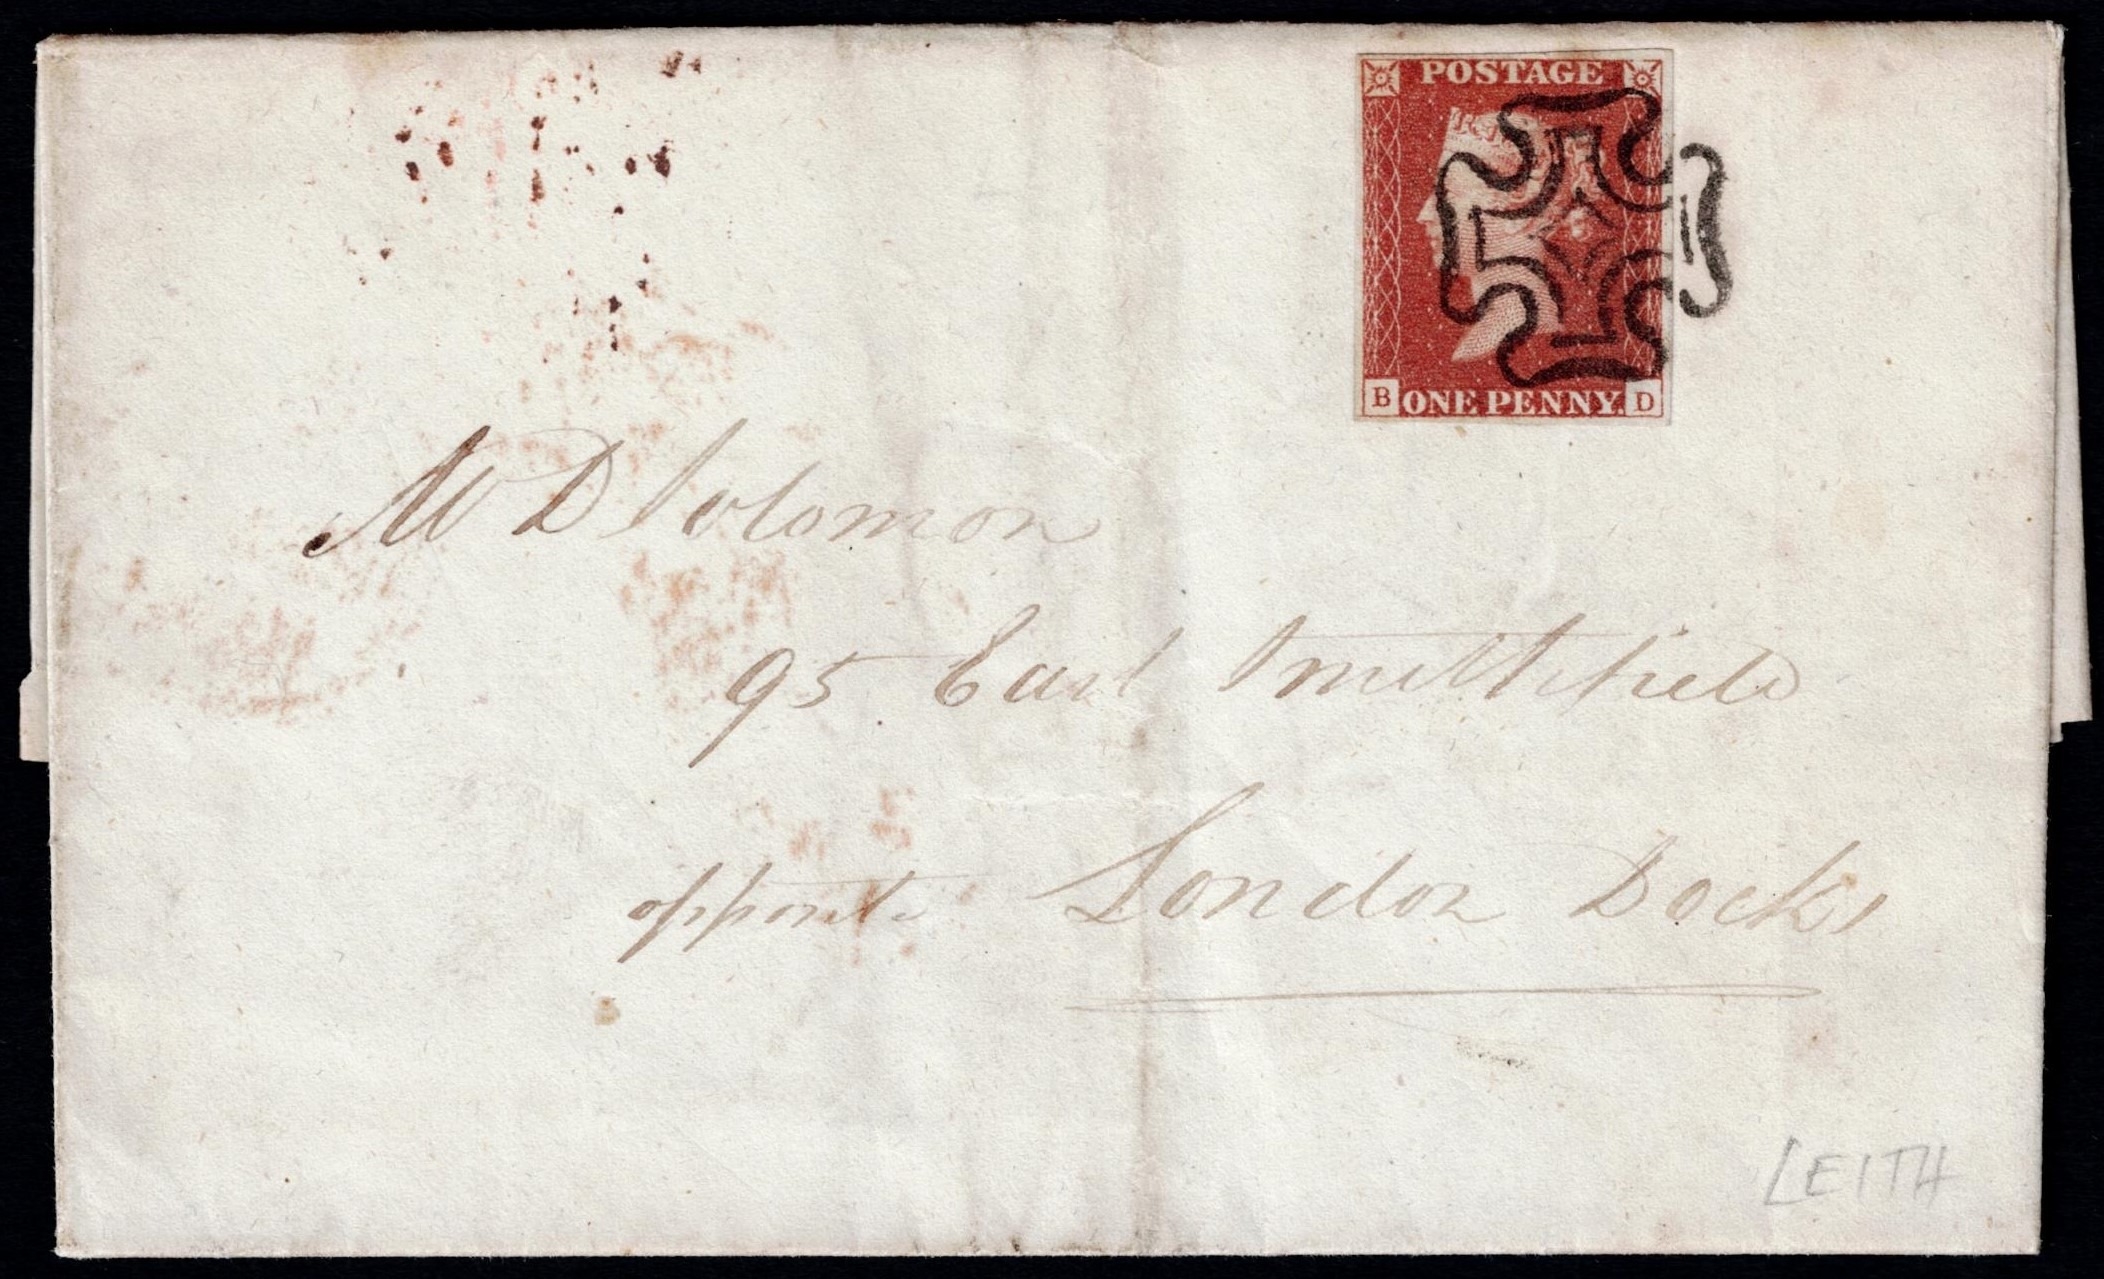 POSTAGE
B ONE PENNY. D
Mr D Solomon
95 East Smithfield
opposite London Docks
LEITH